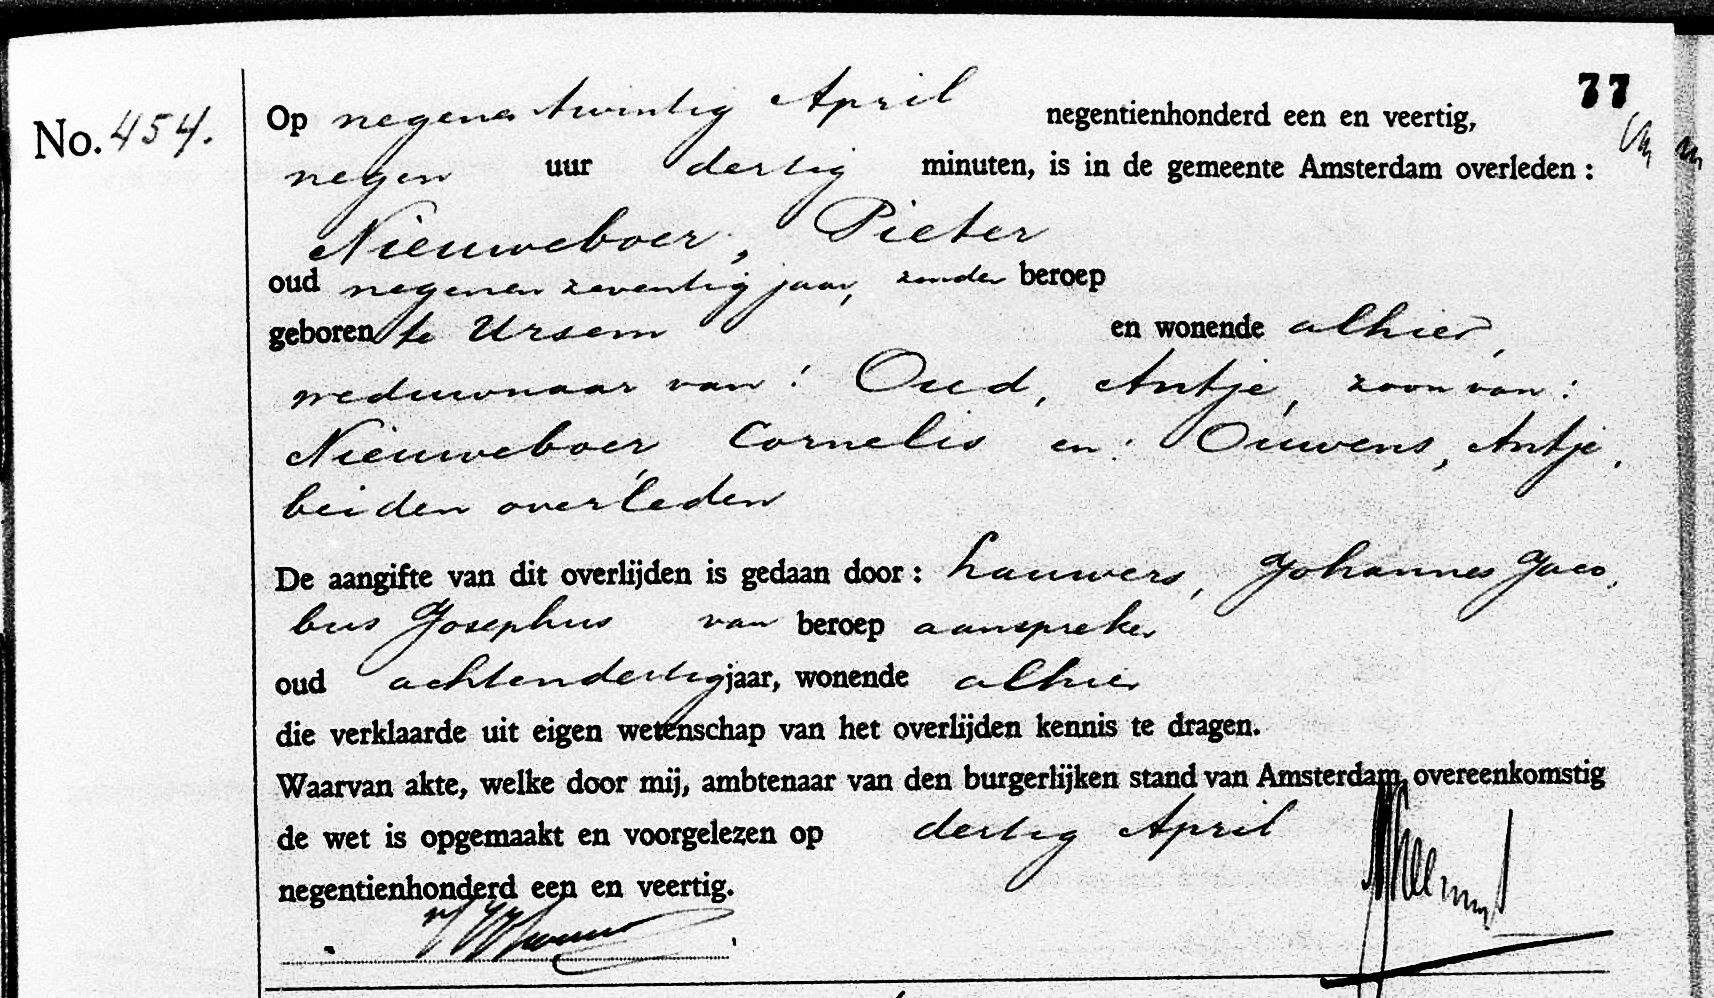 77
No. 454.
Op negenen twintig April negentienhonderd een en veertig,
negen uur dertig minuten, is in de gemeente Amsterdam overleden :
Nieuweboer, Pieter
oud negenen zeventig jaar, zonder beroep
geboren te Ursem en wonende alhier,
weduwnaar van : Oud, Antje, zoon van :
Nieuweboer, Cornelis en : Ouwens, Antje,
beiden overleden
De aangifte van dit overlijden is gedaan door : Lauwers, Johannes Jaco-
bus Josephus van beroep aanspreker
oud achtendertig jaar, wonende alhier
die verklaarde uit eigen wetenschap van het overlijden kennis te dragen.
Waarvan akte, welke door mij, ambtenaar van den burgerlijken stand van Amsterdam, overeenkomstig
de wet is opgemaakt en voorgelezen op dertig April
negentienhonderd een en veertig.